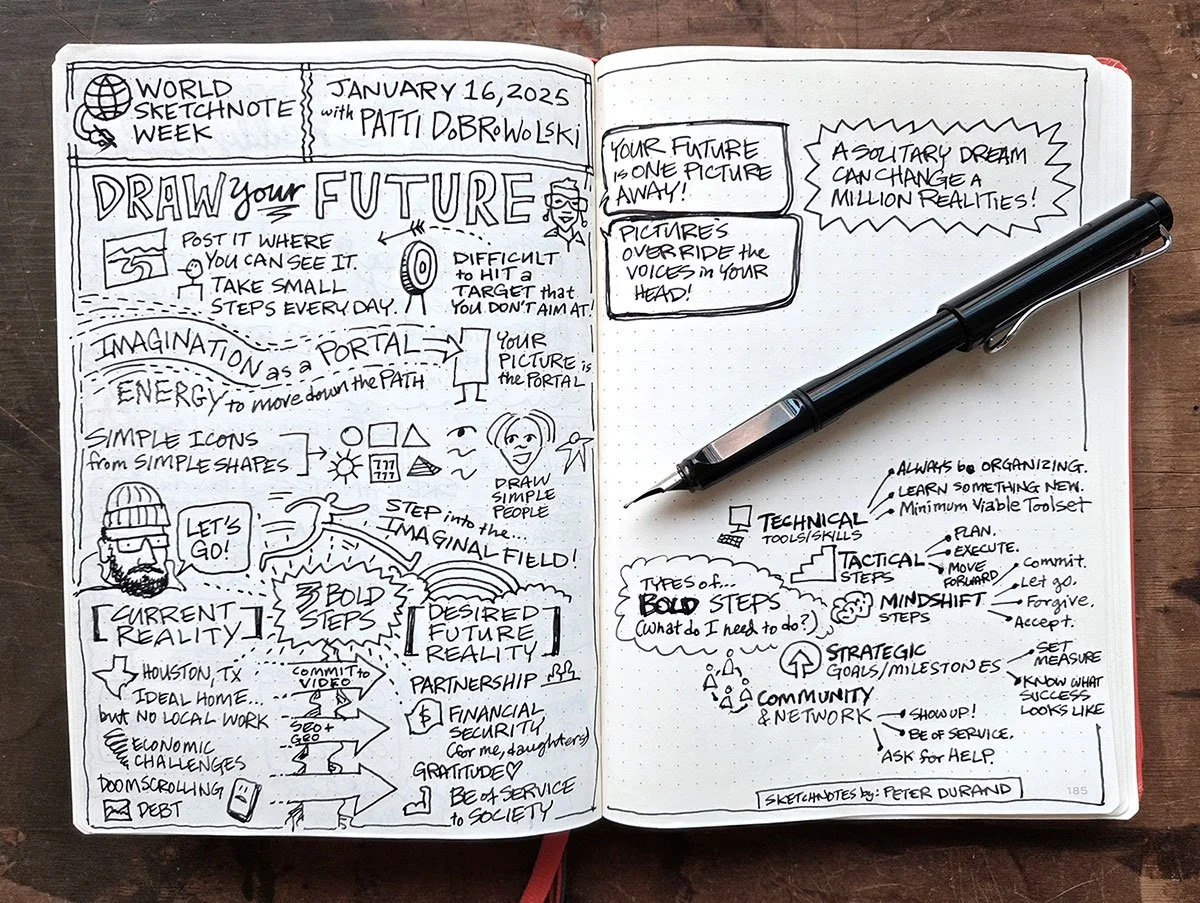 WORLD
SKETCHNOTE
WEEK
JANUARY 16, 2025
with PATTI DOBROWOLSKI
DRAW your FUTURE
POST IT WHERE
YOU CAN SEE IT.
TAKE SMALL
STEPS EVERY DAY.
DIFFICULT
to HIT a
TARGET that
YOU DON'T AIM AT!
IMAGINATION as a PORTAL
ENERGY to move down the PATH
YOUR
PICTURE is
the PORTAL
SIMPLE ICONS
from SIMPLE SHAPES
DRAW
SIMPLE
PEOPLE
LET'S
GO!
STEP into the...
IMAGINAL FIELD!
[CURRENT
REALITY]
3 BOLD
STEPS
[DESIRED
FUTURE
REALITY]
HOUSTON, TX
IDEAL HOME...
but NO LOCAL WORK
ECONOMIC
CHALLENGES
DOOMSCROLLING
DEBT
COMMIT to
VIDEO
SEO +
GEO
PARTNERSHIP
$ FINANCIAL
SECURITY
(for me, daughters)
GRATITUDE♡
BE of SERVICE
to SOCIETY
YOUR FUTURE
is ONE PICTURE
AWAY!
PICTURES
OVERRIDE the
VOICES in YOUR
HEAD!
A SOLITARY DREAM
CAN CHANGE A
MILLION REALITIES!
TYPES of...
BOLD STEPS
(what do I need to do?)
TECHNICAL
TOOLS/SKILLS
ALWAYS be ORGANIZING.
LEARN SOMETHING NEW.
Minimum Viable Toolset
TACTICAL
STEPS
PLAN.
EXECUTE.
MOVE
FORWARD
MINDSHIFT
STEPS
Commit.
Let go.
Forgive.
Accept.
STRATEGIC
GOALS/MILESTONES
SET
MEASURE
KNOW WHAT
SUCCESS
LOOKS LIKE
COMMUNITY
& NETWORK
SHOW UP!
BE of SERVICE.
ASK for HELP.
SKETCHNOTES by: PETER DURAND
185